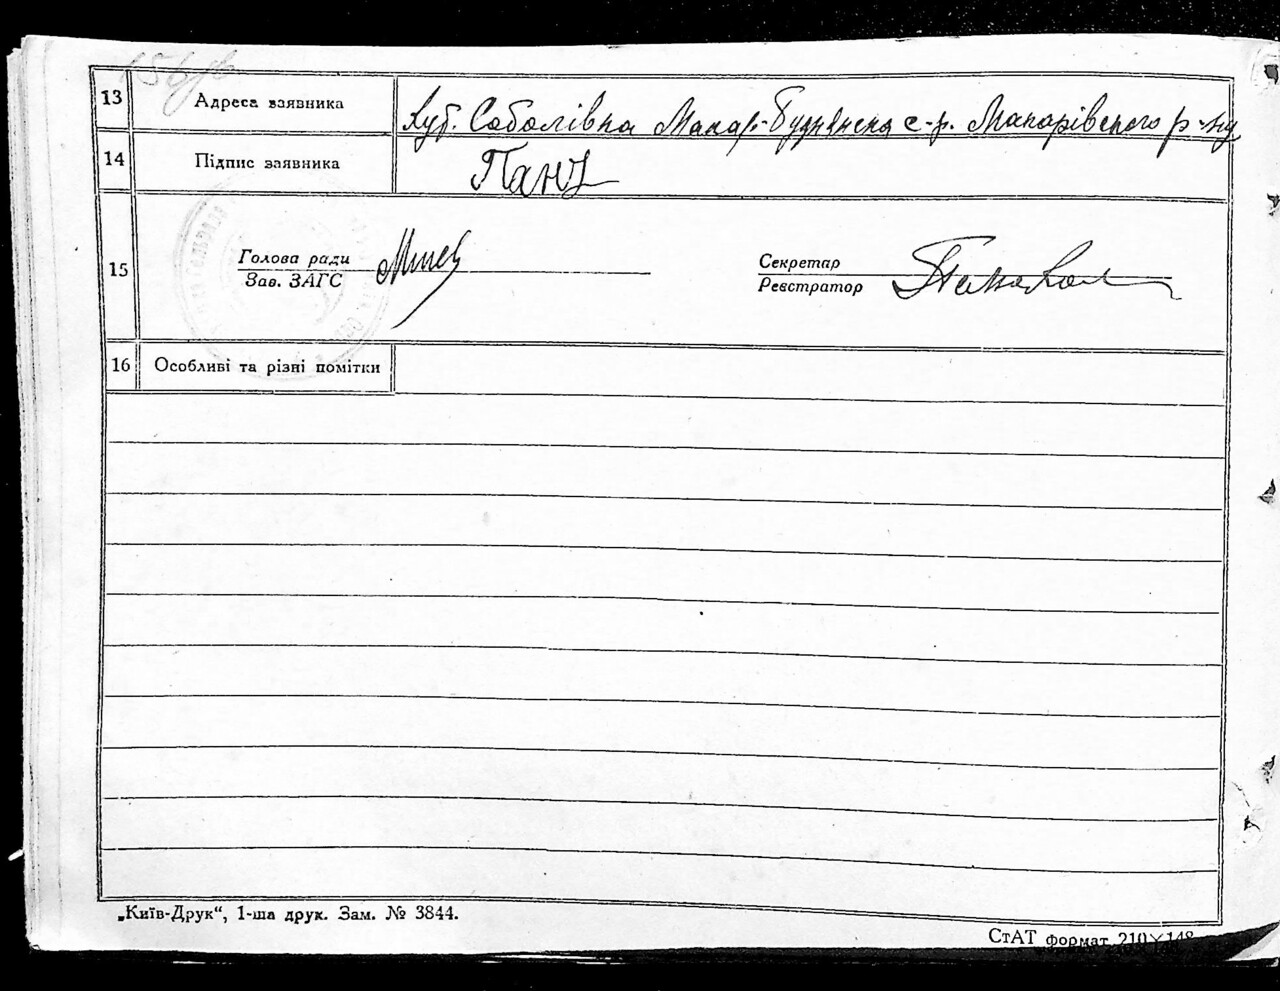 13 Адреса заявника Хут. Соболівка Макар-Буднянска с-р. Макарівського р-ну
14 Підпис заявника
15 Голова ради
Зав. ЗАГС
Секретар
Реєстратор
16 Особливі та різні помітки
„Київ-Друк“, 1-ша друк. Зам. № 3844.
СтАТ формат 210×148